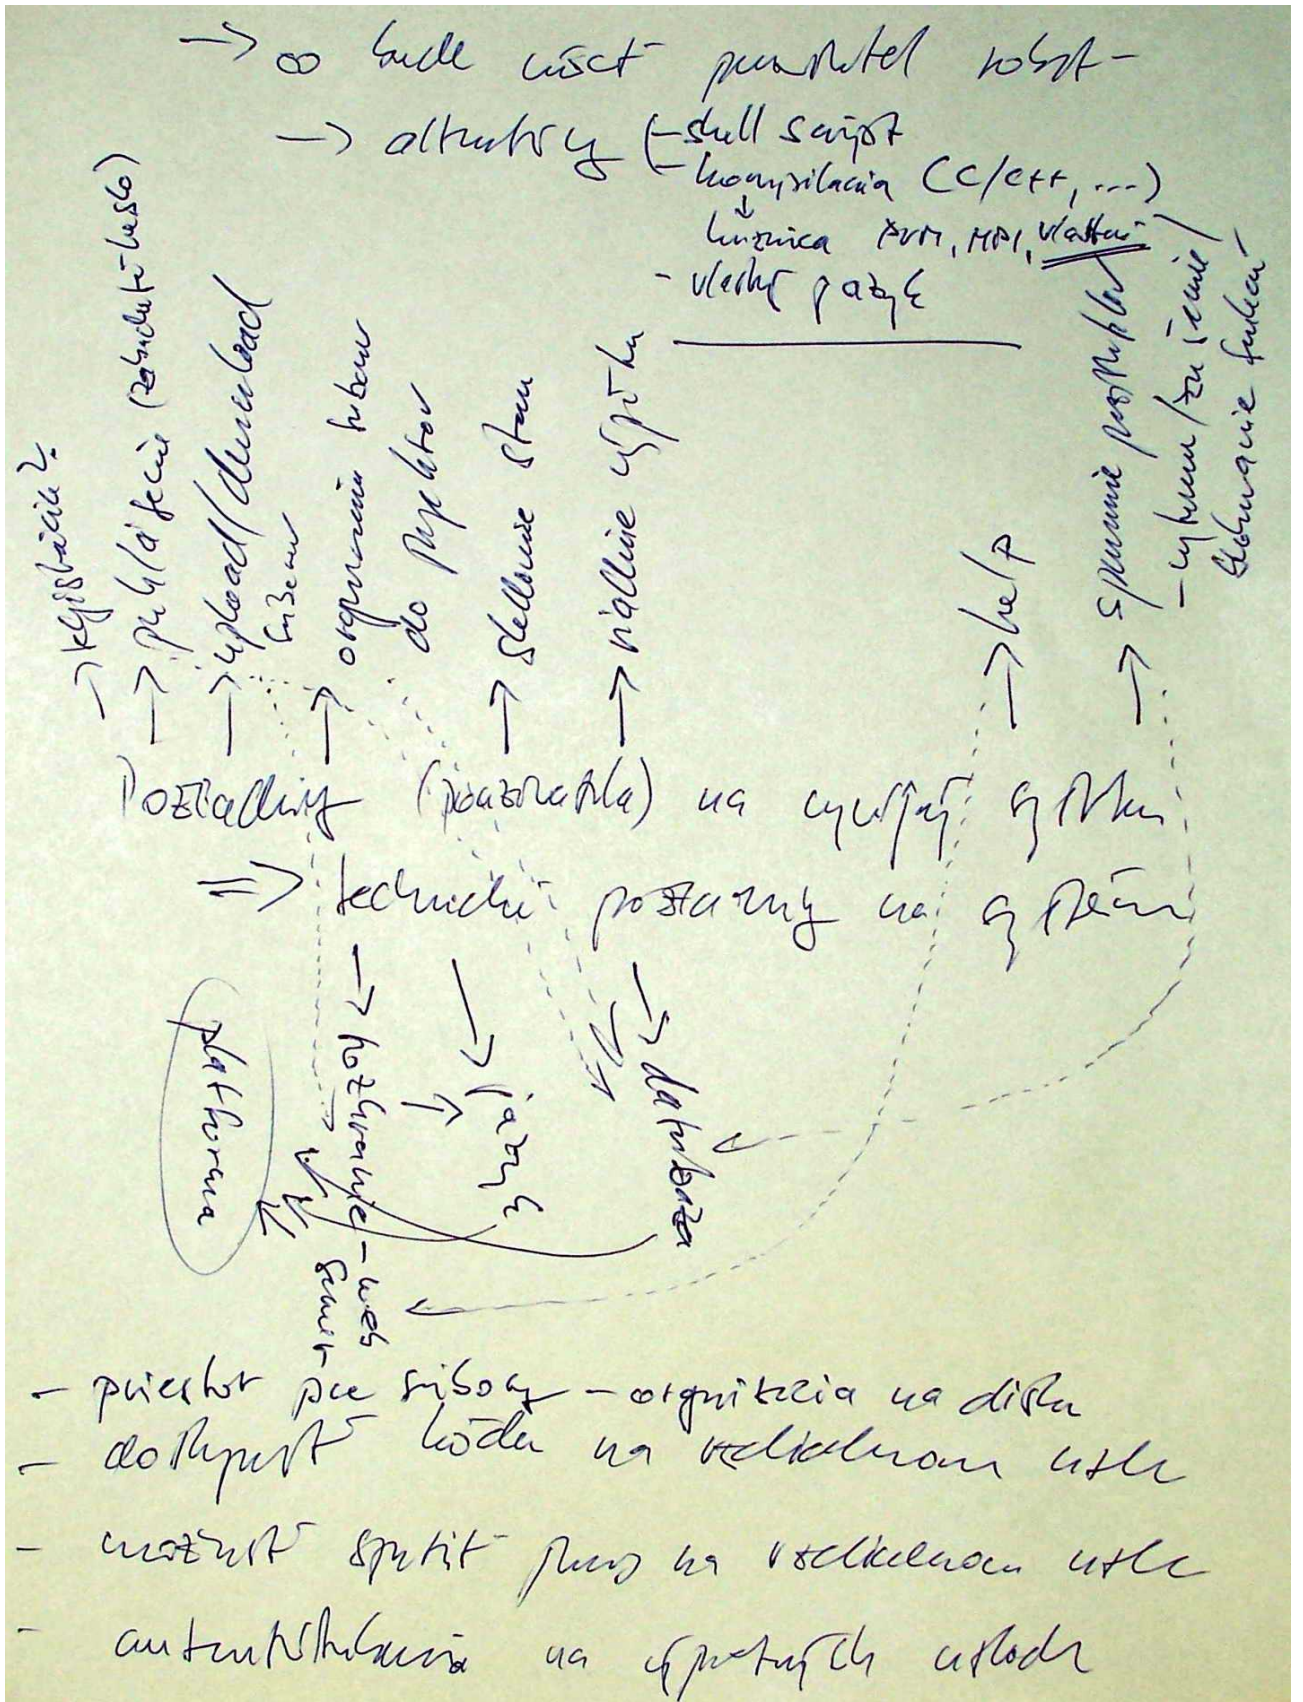 → ∞ bude môcť používateľ robiť -
→ alternatívy (- shell script
- kompilácia (C/C++, ...)
↓
knižnica PVM, MPI, vlastné
- vlastný jazyk
→ registrácia?
→ prihlásenie (zabudnuté heslo)
→ upload/download
súborov
→ organizácia súborov
do projektov
→ sledovanie stavu
→ riadenie výpočtu
→ help
→ spustenie
Požiadavky (používateľa) na vyvíjaný systém
⇒ technické požiadavky na systém
platforma
→ rozhranie - web
server
→ jazyk
→ databáza
- priestor pre súbory - organizácia na disku
- dostupnosť kódu na vzdialenom uzle
- možnosť spustiť proces na vzdialenom uzle
- na výpočtových uzloch